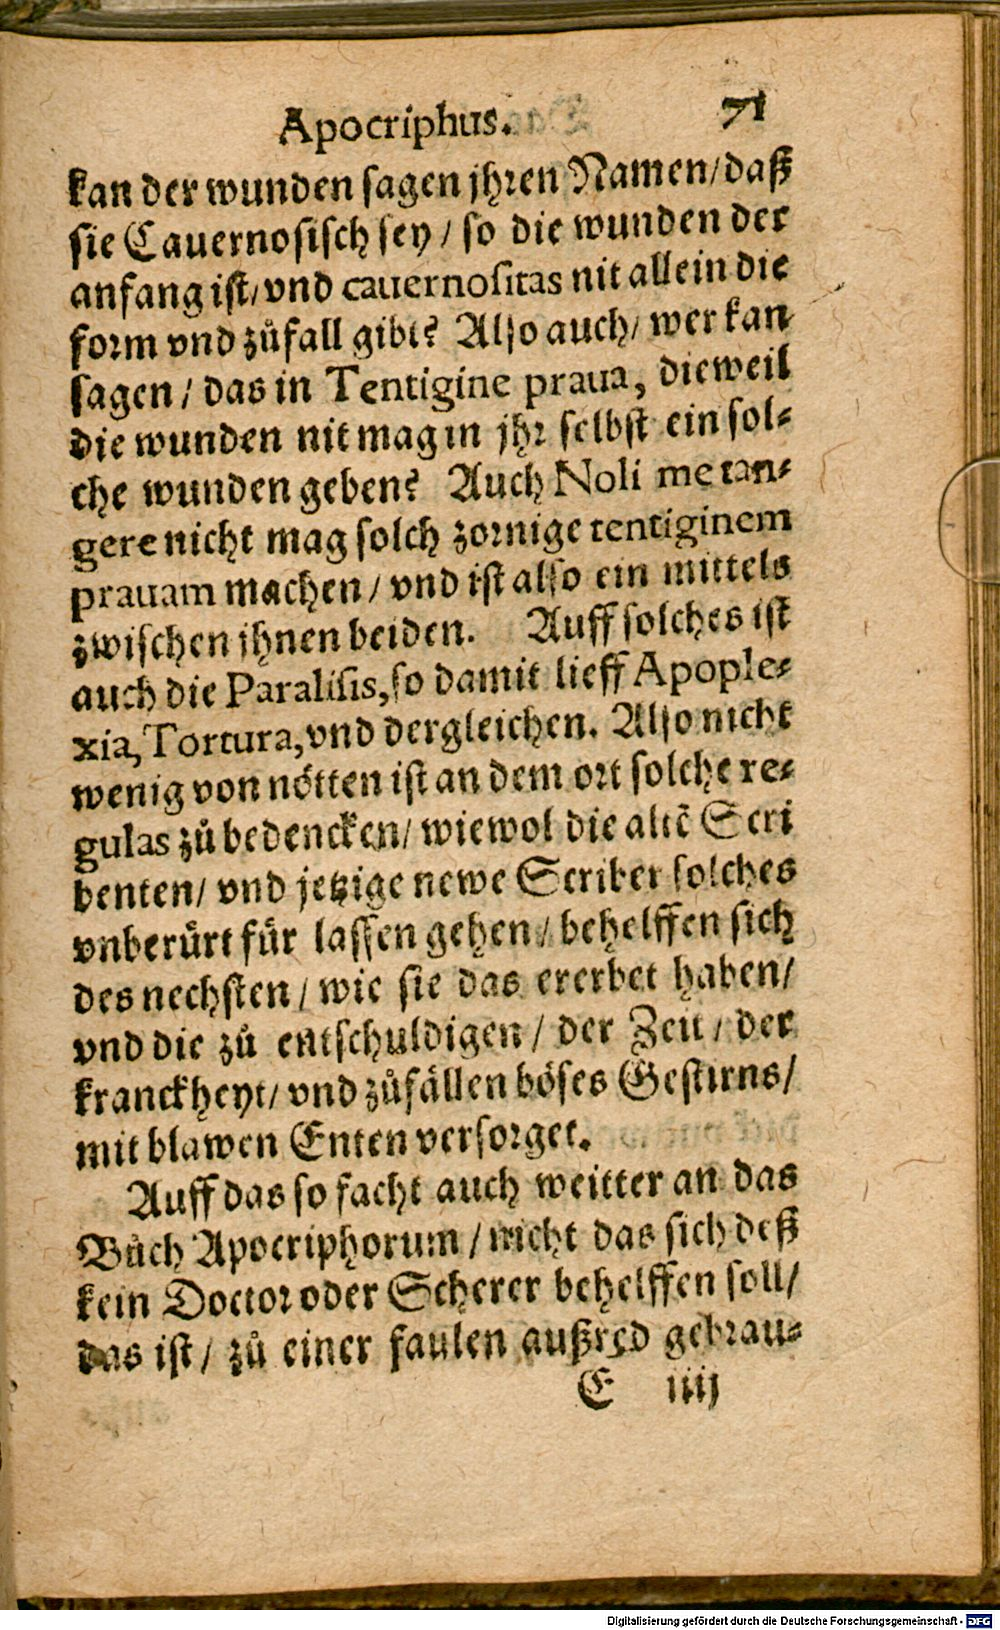 Apocriphus. 71
kan der wunden sagen jhren Namen/ daß
sie Cauernosisch sey / so die wunden der
anfang ist/ vnd cauernositas nit allein die
form vnd zůfall gibt? Also auch/ wer kan
sagen / das in Tentigine praua, dieweil
die wunden nit mag in jhr selbst ein sol⸗
che wunden geben? Auch Noli me tan⸗
gere nicht mag solch zornige tentiginem
prauam machen / vnd ist also ein mittels
zwischen jhnen beiden. Auff solches ist
auch die Paralisis, so damit lieff Apople⸗
xia, Tortura, vnd dergleichen. Also nicht
wenig von nötten ist an dem ort solche re⸗
gulas zů bedencken/ wiewol die altē Scri
benten/ vnd jetzige newe Scriber solches
vnberůrt für lassen gehen / behelffen sich
des nechsten / wie sie das ererbet haben/
vnd die zů entschuldigen / der Zeit / der
kranckheyt/ vnd zůfällen böses Gestirns/
mit blawen Enten versorget.
Auff das so facht auch weitter an das
Bůch Apocriphorum / nicht das sich deß
kein Doctor oder Scherer behelffen soll/
das ist / zů einer faulen außred gebrau⸗
E iiij
Digitalisierung gefördert durch die Deutsche Forschungsgemeinschaft - DFG